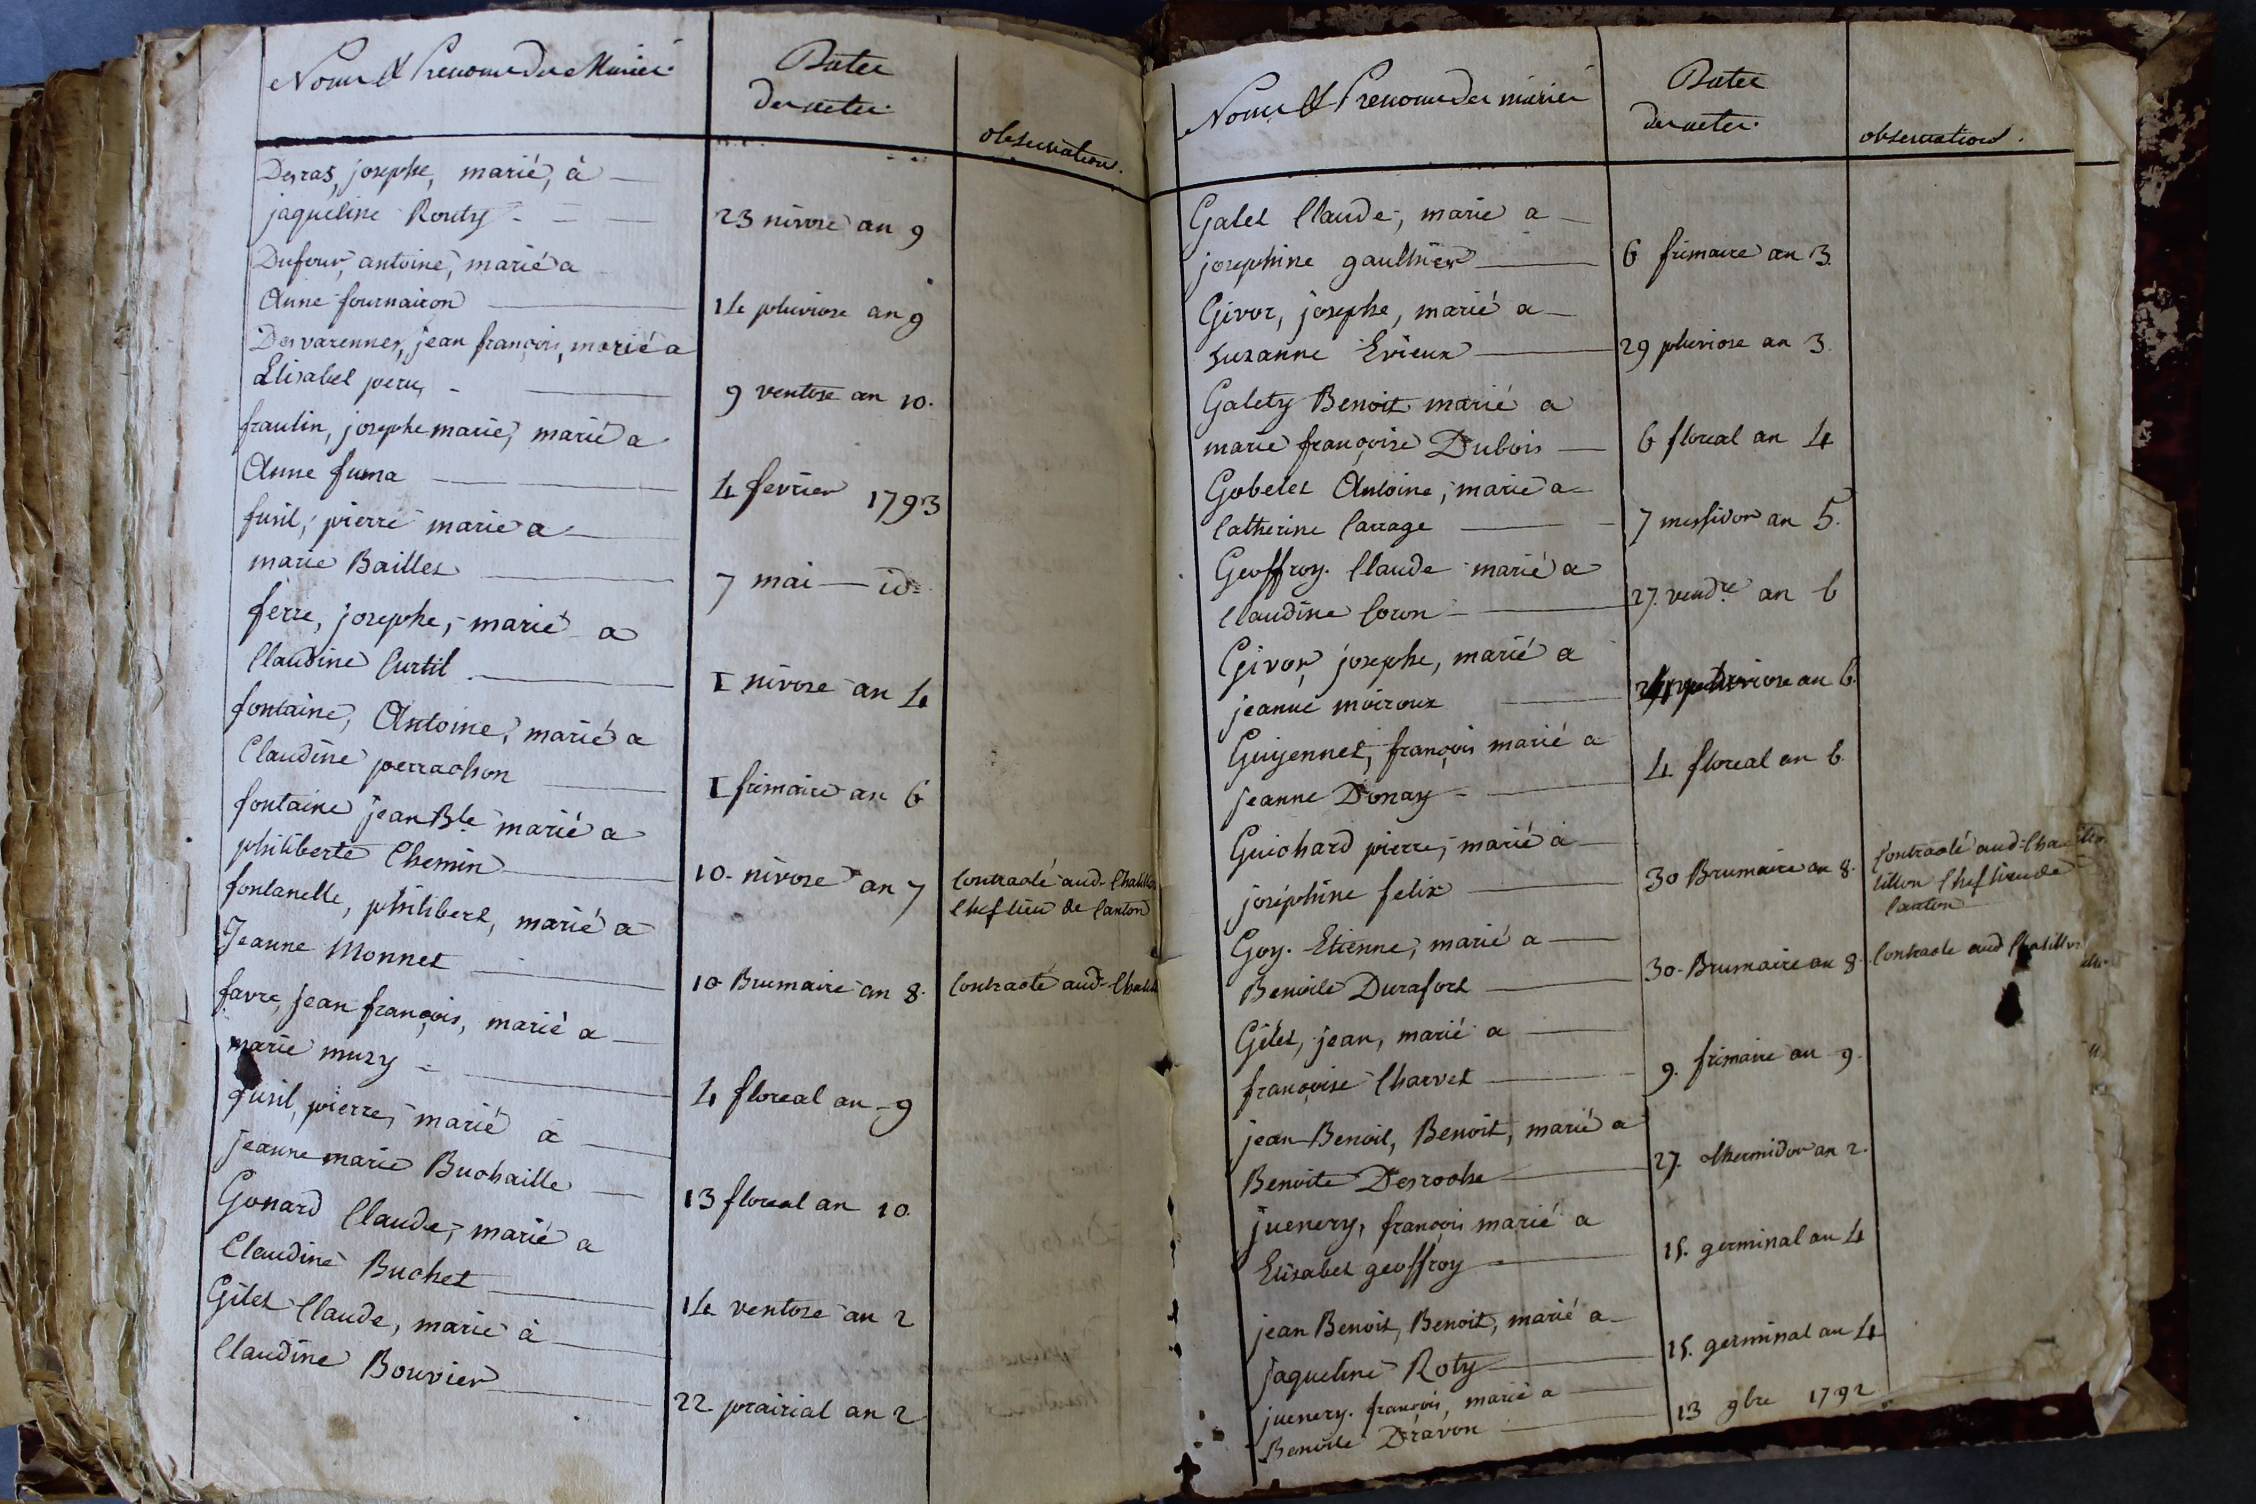 Noms & Prenoms des Mariés
Dates
des actes.
observations.
Desras, josephe, marié, à
jaqueline Routy
23 nivose an 9
Dufour, antoine, marié a
Anne fournairon
14 pluviose an 9
Desvarennes, jean françois, marié a
Elisabet peru,
9 ventose an 10.
fraulin, josephe marie, marié a
Anne fuma
4 fevrier 1793
fusil, pierre marié a
marie Baillet
7 mai — id=
ferre, josephe, marié a
Claudine Curtil
1 nivose an 4
fontaine, Antoine, marié a
Claudine perrachon
1 frimaire an 6
fontaine jean Bte marié a
philiberte Chemin
10. nivose an 7
Contracté aud. Chatillon
Chef lieu de Canton
fontanelle, philibert, marié a
Jeanne Monnet
10 Brumaire an 8.
Contracté aud. Chatill
favre, jean françois, marié a
marie muzy
4 floreal an 9
fusil, pierre, marié à
jeanne marie Buchaille
13 floreal an 10.
Gonard Claude, marié a
Claudine Buchet
14 ventose an 2
Gilet Claude, marié à
Claudine Bouvier
22 prairial an 2
Noms & Prenoms des mariés
Dates
des actes.
observations.
Galet Claude, marié a
josephine gaulthier
6 frimaire an 3.
Givor, josephe, marié a
Suzanne Evieux
29 pluviose an 3.
Galety Benoit marié a
marie françoise Dubois
6 floreal an 4
Gobelet Antoine, marié a
Catherine Carrage
7 messidor an 5.
Geoffroy. Claude marié a
Claudine Coron
27. vendre an 6
Givor, josephe, marié a
jeanne moiroux
pluviose an 6.
Guyennet, françois marié a
jeanne Donay
4 floreal an 6.
Guichard pierre, marié à
joséphine felix
30 Brumaire an 8.
Contracté aud. Cha
tillon Chef lieu de
Canton
Goy. Etienne, marié a
Benoite Durafort
30. Brumaire an 8.
Contracté aud Chatillon
Gilet, jean, marié a
françoise Charvet
9. frimaire an 9.
jean Benoit, Benoit, marié a
Benoite Desroche
27. thermidor an 2.
juenery, françois marié a
Elisabet geoffroy
15. germinal an 4
jean Benoit, Benoit, marié a
jaqueline Roty
15. germinal an 4
juenery. françois, marié a
Benoite Dravon
13 9bre 1792